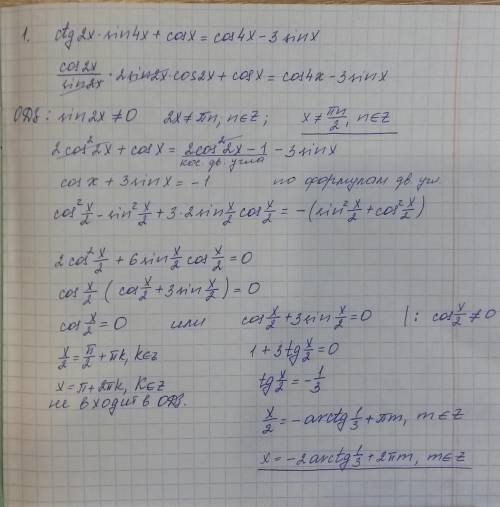 1. ctg2x·sin4x + cosx = cos4x − 3sinx
cos2x/sin2x · 2sin2x·cos2x + cosx = cos4x − 3sinx
ОДЗ: sin2x ≠ 0 2x ≠ πn, n∈Z; x ≠ πn/2, n∈Z
2cos²2x + cosx = 2cos²2x − 1 − 3sinx
кос. дв. угла
cosx + 3sinx = −1 по формулам дв. уг.
cos²x/2 − sin²x/2 + 3·2sinx/2 cosx/2 = −(sin²x/2 + cos²x/2)
2cos²x/2 + 6sinx/2 cosx/2 = 0
cosx/2 (cosx/2 + 3sinx/2) = 0
cosx/2 = 0 или cosx/2 + 3sinx/2 = 0 |: cosx/2 ≠ 0
x/2 = π/2 + πk, k∈Z 1 + 3tgx/2 = 0
x = π + 2πk, k∈Z tgx/2 = −1/3
не входит в ОДЗ.
x/2 = −arctg1/3 + πm, m∈Z
x = −2arctg1/3 + 2πm, m∈Z